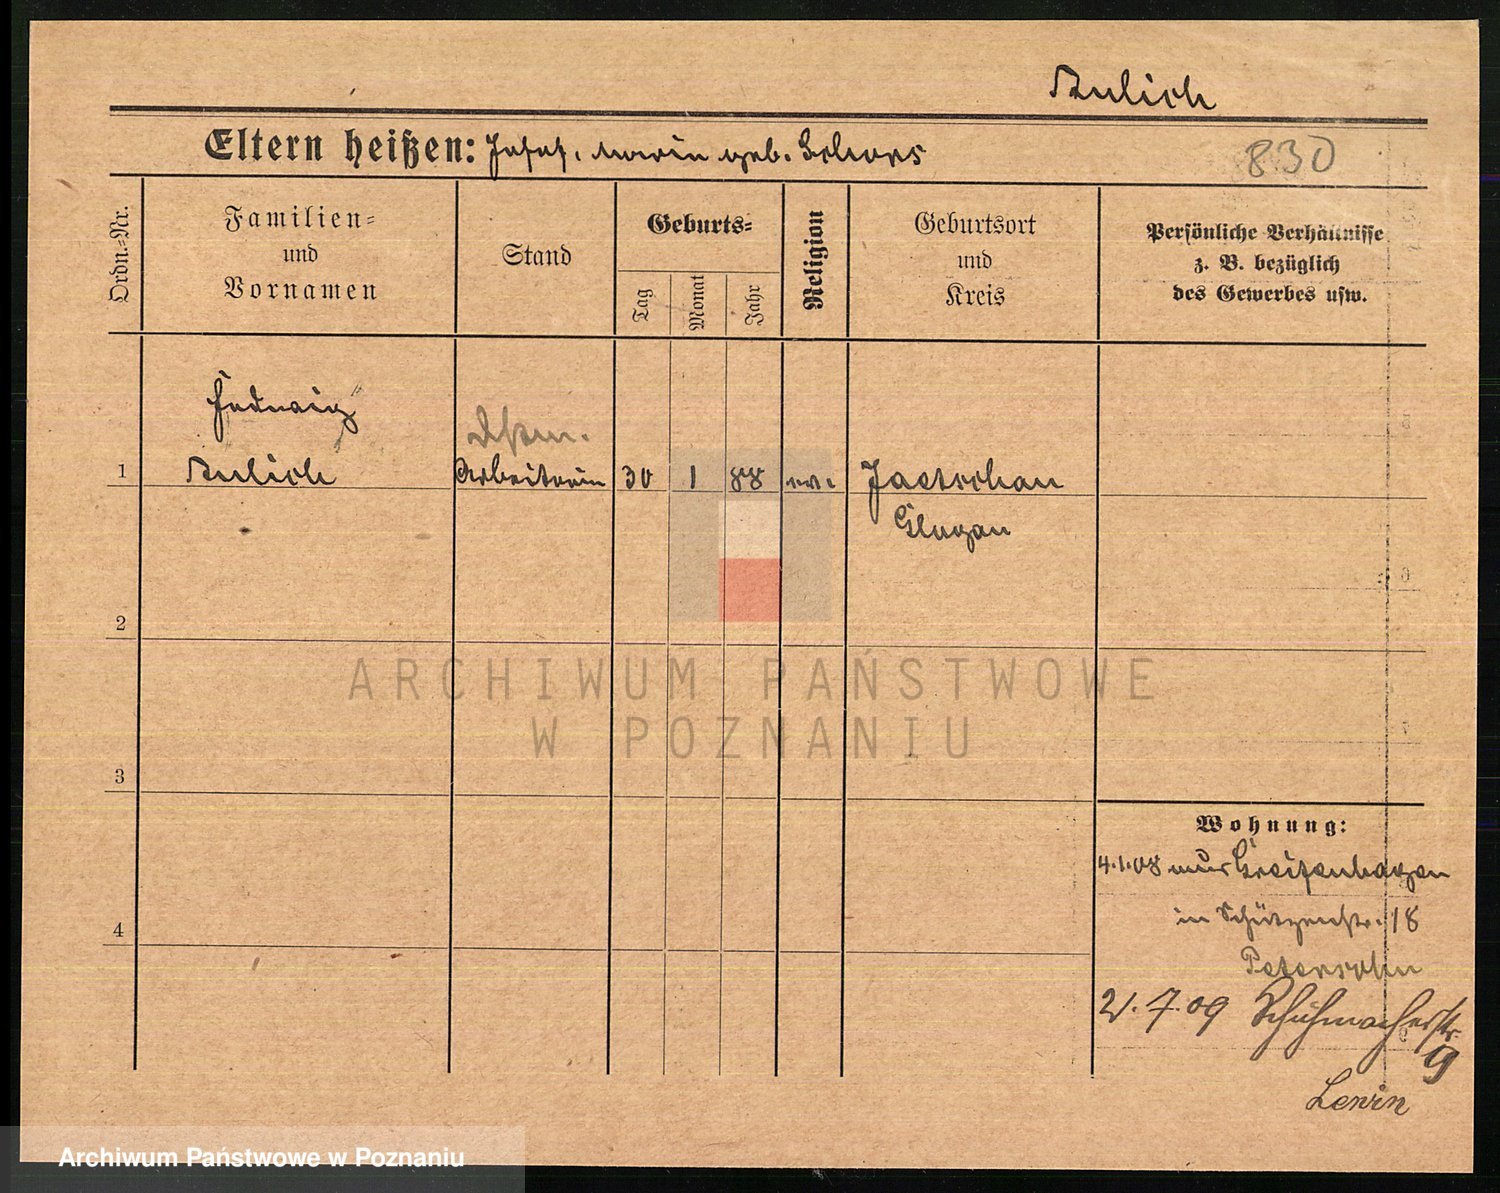 Aulich
Eltern heißen: Josef, Maria geb. Schors
830
Ordn.=Nr.
Familien=
und
Vornamen
Stand
Geburts=
Tag
Monat
Jahr
Religion
Geburtsort
und
Kreis
Persönliche Verhältnisse
z. B. bezüglich
des Gewerbes usw.
Hedwig
1 Aulich Arbeiterin 30 1 88 ev. Jaetschau
Glogau
2
3
4
Wohnung:
4.1.08 aus Greifenhagen
in Schützenstr. 18
Petersohn
21.7.09 Schuhmacherstr.
9
Lewin
ARCHIWUM PAŃSTWOWE
W POZNANIU
Archiwum Państwowe w Poznaniu